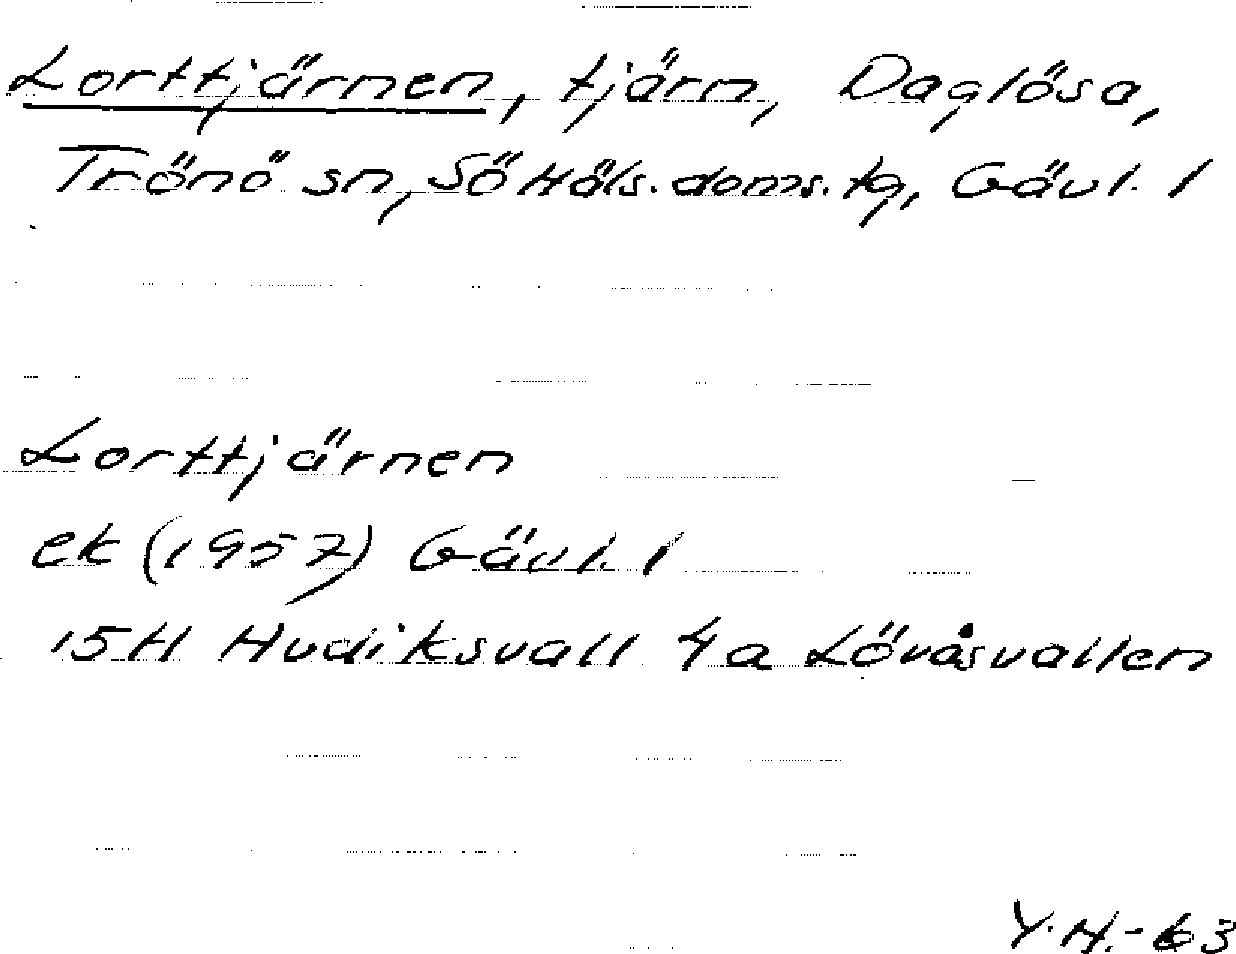 Lorttjärnen, tjärn, Daglösa,
Trönö sn, Sö Häls. doms. tg, Gävl. l
Lorttjärnen
ek (1957) Gävl. l
15H Hudiksvall 4a Lövåsvallen
Y.H.-63